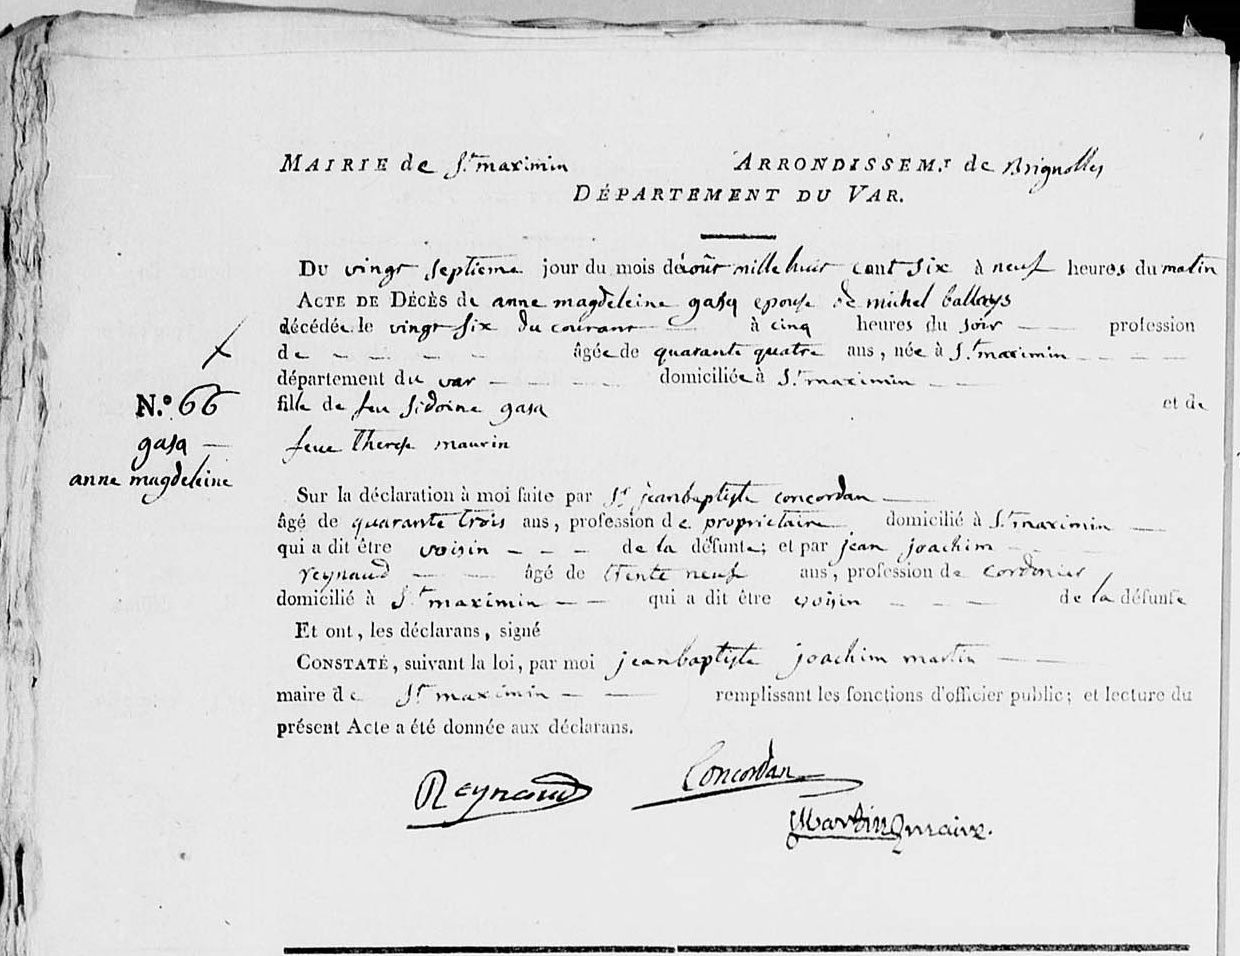 MAIRIE de St maximin ARRONDISSEM.T de Brignolles
DÉPARTEMENT DU VAR.
DU vingt septieme jour du mois d'août mille huit cent six à neuf heures du matin
ACTE DE DÉCÈS de anne magdeleine gasq epouse de michel
décédée le vingt six du courant à cinq heures du soir profession
de - - - - âgée de quarante quatre ans, née à St maximin - - -
département du var - - - - domiciliée à St maximin - -
N.o 66 fille de feu sidoine gasq et de
gasq — feue therese maurin
anne magdeleine
Sur la déclaration à moi faite par Sr jeanbaptiste concordan
âgé de quarante trois ans, profession de proprietaire domicilié à St maximin
qui a dit être voisin - - - de la défunte; et par jean joachim
reynaud âgé de trente neuf ans, profession de cordonier
domicilié à St maximin - - qui a dit être voisin - - - de la défunte
Et ont, les déclarans, signé
CONSTATÉ, suivant la loi, par moi jeanbaptiste joachim martin
maire de St maximin - - remplissant les fonctions d'officier public; et lecture du
présent Acte a été donnée aux déclarans.
Reynaud Concordan
Martin maire.